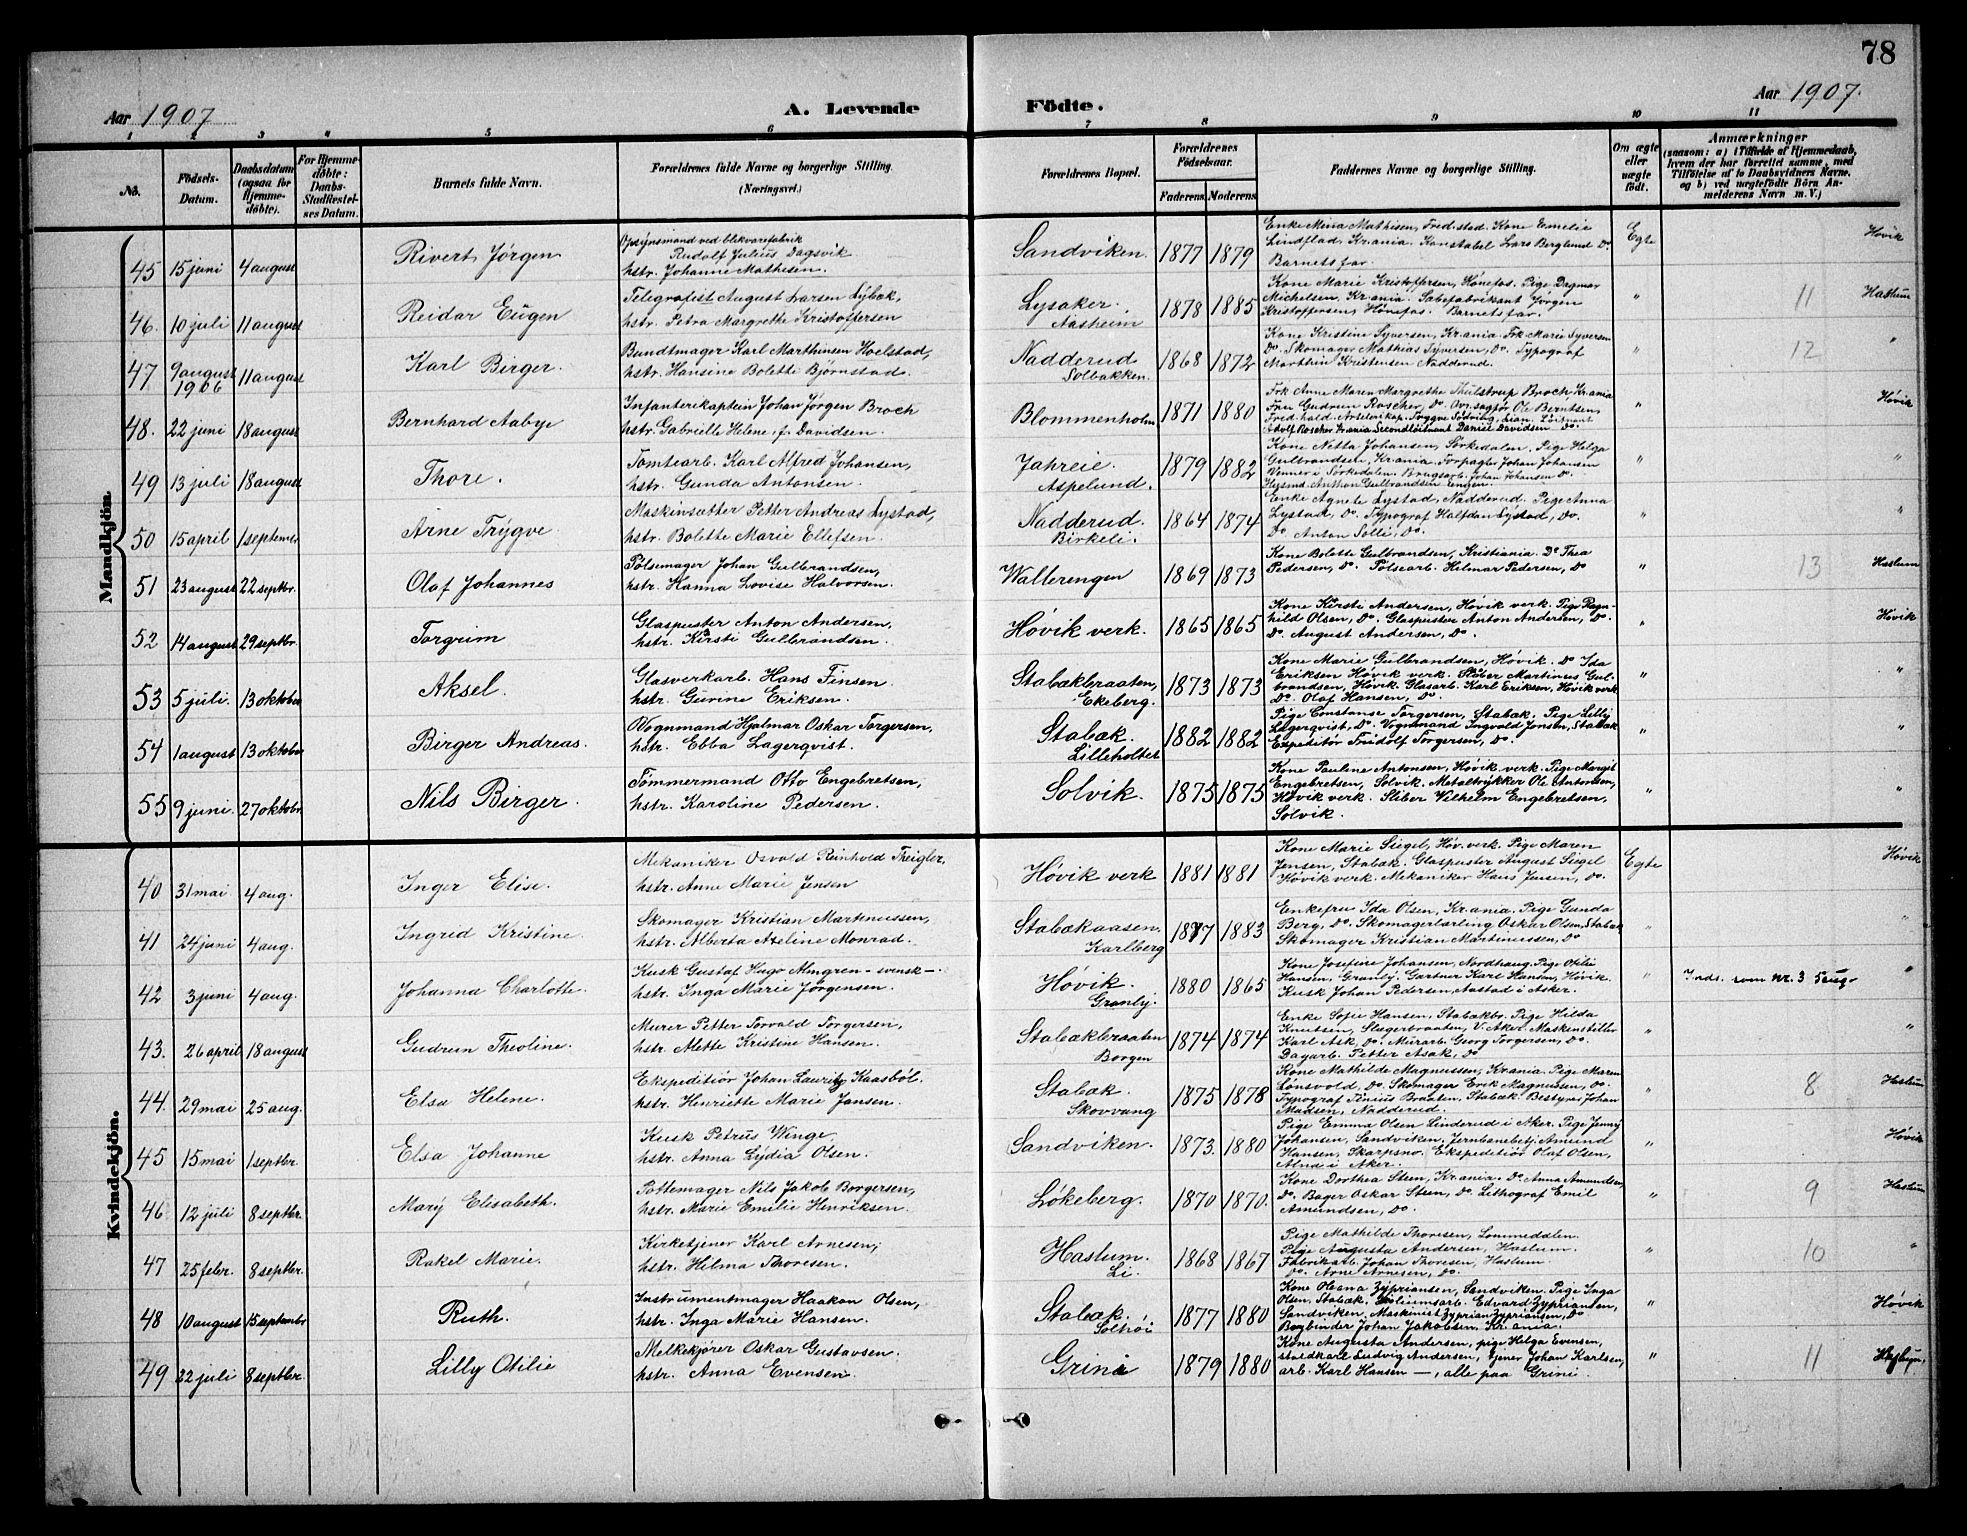 78
Aar 1907
A. Levende
Födte.
Aar 1907.
1 2 3 4 5 6 7 8 9 10 11
No.
Födsels-
Datum.
Daabsdatum
(ogsaa for
Hjemme-
döbte).
For Hjemme-
döbte:
Daabs-
Stadfæstel-
ses Datum.
Barnets fulde Navn.
Forældrenes fulde Navne og borgerlige Stilling.
(Næringsvei.)
Forældrenes Bopæl.
Forældrenes
Födselsaar.
Faderens. Moderens.
Faddernes Navne og borgerlige Stilling.
Om ægte
eller
uægte
födt.
Anmærkninger
(saasom: a) i Tilfælde af Hjemmedaab,
hvem der har forrettet samme, med
Tilföielse af to Daabsvidners Navne,
og b) ved uægtefödte Börn An-
melderens Navn m. V.)
Mandkjön.
45 15 juni 4 august Rivert Jørgen
Opsynsmand ved blikvarefabrik
Rudolf Julius Dagsvik
hstr. Johanne Mathisen.
Sandviken. 1877 1879
Enke Mina Mathisen, Fred.stad. Kone Emelie
Lindflad, Kr.ania. Konstabel Lars Berglund Do
Barnets far.
Egte Høvik
46. 10 juli 11 august Reidar Eugen
Telegrafist August Larsen Lybæk,
hstr. Petra Margrethe Kristoffersen
Lysaker.
Aasheim
1878 1885
Kone Marie Kristoffersen, Hønefos. Pige Dagmar
Michelsen, Kr.ania. Sæbefabrikant Jørgen
Kristoffersen, Hønefos. Barnets far.
" 11 Haslum
47 9 august 1906 11 august Karl Birger.
Bundtmager Karl Marthinsen Hoelstad,
hstr. Hansine Bolette Bjørnstad.
Nadderud
Solbakken.
1868 1872
Kone Kristine Syversen, Kr.ania. Frk Marie Syversen
Do. Skomager Mathias Syversen, Do. Typograf
Marthin Kristensen Nadderud.
" 12 "
48. 22 juni 18 august Bernhard Aabye
Infanterikaptein Johan Jørgen Broch
hstr. Gabrielle Helene f. Davidsen.
Blommenholm 1871 1880
Frk Anne Maren Margrethe Thulstrup Broch Kr.ania
Fru Gudrun Roscher, Do. Ovr.sagfør Ole Berntsen,
Fred.hald. Løitnant
Adolf Roscher Kr.ania Secondløitnant Daniel Davidsen Do.
" Høvik
49 13 juli 18 august Thore.
Tomtearb. Karl Alfred Johansen,
hstr. Gunda Antonsen.
Jahreie.
Aspelund.
1879 1882
Kone Netta Johansen, Sørkedalen. Pige Helga
Gulbrandsen, Kr.ania. Forpagter Johan Johansen
Venner i Sørkedalen. Brugsarb. Johan Johansen Do
Husmd. Anthon Gulbrandsen Engen.
" "
50 15 april 1 septembr Arne Trygve.
Maskinsætter Petter Andreas Lystad,
hstr. Bolette Marie Ellefsen.
Nadderud.
Birkeli.
1864 1874
Enke Agnete Lystad, Nadderud. Pige Anna
Lystad, Do. Typograf Halfdan Lystad, Do.
Do. Anton Solli, Do.
" "
51 23 august 22 septbr. Olaf Johannes
Pølsemager Johan Gulbrandsen,
hstr. Hanna Lovise Halvorsen.
Wallerengen 1869 1873
Kone Bolette Gulbrandsen, Kristiania. Do Thea
Pedersen, Do. Pølsearb. Hilmar Pedersen, Do
" 13 Haslum
52 14 august 29 septbr. Torgrim
Glaspuster Anton Andersen,
hstr. Kirsti Gulbrandsen.
Høvik verk. 1865 1865
Kone Kirsti Andersen, Høvik verk. Pige Ragn-
hild Olsen, Do. Glaspuster Anton Andersen, Do.
Do. August Andersen, Do.
" Høvik
53 5 juli. 13 oktober Aksel.
Glasverkarb. Hans Finsen.
hstr. Gurine Eriksen.
Stabækbraaten,
Ekeberg.
1873 1873
Kone Marie Gulbrandsen, Høvik. Do Ida
Eriksen Høvik verk. Sliber Martinus Gul-
brandsen, Høvik. Glasarb. Karl Eriksen, Høvik verk
Do. Olaf Hansen, Do.
" "
54 1 august 13 oktober Birger Andreas.
Vognmand Hjalmar Oskar Torgersen,
hstr. Ebba Lagerqvist.
Stabæk.
Lilleholtet
1882 1882
Pige Constanse Torgersen, Stabæk. Pige Lilly
Lagerqvist, Do. Vognmand Ingvald Jensen, Stabæk
Expeditör Fridolf Torgersen, Do.
" "
55 9 juni. 27 oktobr. Nils Birger.
Tømmermand Otto Engebretsen,
hstr. Karoline Pedersen.
Solvik. 1875 1875
Kone Pauline Antonsen, Høvik verk. Pige Margit
Engebretsen, Solvik. Metaltrykker Ole Antonsen,
Høvik verk. Sliber Wilhelm Engebretsen,
Solvik.
" "
Kvindekjön.
40 31 mai 4 aug. Inger Elise.
Mekaniker Osvald Reinhold Theigler,
hstr. Anne Marie Jensen
Høvik verk 1881 1881
Kone Marie Siegel, Høv. verk. Pige Maren
Jensen, Stabæk. Glaspuster August Siegel
Høvik verk. Mekaniker Hans Jensen, Do.
Egte Høvik
41 24 juni 4 aug. Ingrid Kristine.
Skomager Kristian Martinussen,
hstr. Alberta Axeline Monrad.
Stabækaasen,
Karlberg
1877 1883
Enkefru Ida Olsen, Kr.ania. Pige Gunda
Berg, Do. Skomagerlærling Oskar Olsen, Stabæk
Skomager Kristian Martinussen, Do
" "
42 3 juni 4 aug. Johanna Charlotte.
Kusk Gustaf Hugo Almgren – svensk –.
hstr. Inga Marie Jørgensen.
Høvik.
Granly.
1880 1865
Kone Josefine Johansen, Nordhaug. Pige Otilie
Hansen, Granly. Gartner Karl Hansen, Høvik.
Kusk Johan Pedersen, Aastad i Asker.
" Inds. som nr. 3 "
43. 26 april 18 august Gudrun Theoline.
Murer Petter Torvald Torgersen,
hstr. Alette Kristine Hansen.
Stabækbraaten
Borgen
1874 1874
Enke Sofie Hansen, Stabækbr. Pige Hilda
Knutsen, Slagerbraaten, V. Aker. Maskinstillbr
Karl Ask, Do. Murarb. Georg Torgersen, Do.
Dagarb. Petter Asak, Do
" "
44. 29 mai 25 aug. Elsa Helene.
Ekspeditiør Johan Lauritz Kaasbøl.
hstr. Henriette Marie Jansen.
Stabæk.
Skovvang
1875 1878
Kone Mathilde Magnussen, Kr.ania. Pige Maren
Lønsvold, Do. Skomager Erik Magnussen, Do.
Typograf Tinius Braaten, Stabæk. Bestyrer Johan
Madsen, Nadderud.
" 8 Haslum
45 15 mai 1 septbr. Elsa Johanne
Kusk Petrus Winge.
hstr. Anna Lydia Olsen.
Sandviken. 1873. 1880
Pige Emma Olsen Linderud i Aker. Pige Jenny
Johansen, Sandviken. Jernbanebetj. Amund
Hansen, Skarpsno. Ekspeditør Olaf Olsen,
Alna i Aker.
" Høvik
46 12 juli 8 septbr. Mary Elisabeth.
Pottemager Nils Jakob Borgersen,
hstr. Marie Emilie Henriksen.
Løkeberg. 1870 1870.
Kone Dorthea Steen, Kr.ania. Do Anna Amundsen,
Do. Bager Oskar Steen, Do. Lithograf Emil
Amundsen, Do.
" 9 Haslum
47 25 febr. 8 septbr. Rakel Marie.
Kirketjener Karl Arnesen,
hstr. Hilma Thoresen.
Haslum.
Li.
1868 1867
Pige Mathilde Thoresen, Lommedalen.
Pige Augusta Andersen, Haslum.
Fabrikarb. Johan Thoresen, Haslum.
Do. Arne Arnesen, Do.
" 10 "
48 10 august 15 septembr Ruth.
Instrumentmager Haakon Olsen,
hstr. Inga Marie Hansen.
Stabæk.
Solhøi
1877 1880
Kone Oleana Zypriansen, Sandviken. Pige Inga
Olsen, Stabæk. Edvard Zypriansen,
Sandviken. Maskinist Zyprian Zypriansen, Do
Bogbinder Johan Jakobsen. Kr.ania.
" Høvik
49 22 juli 8 septbr. Lilly Otilie
Melkekjører Oskar Gustavsen.
hstr. Anna Evensen.
Grini 1879 1880
Kone Augusta Andersen, pige Helga Evensen,
staldkarl Ludvig Andersen, tjener Johan Karlsen,
arb. Karl Hansen —, alle paa Grini.
" 11